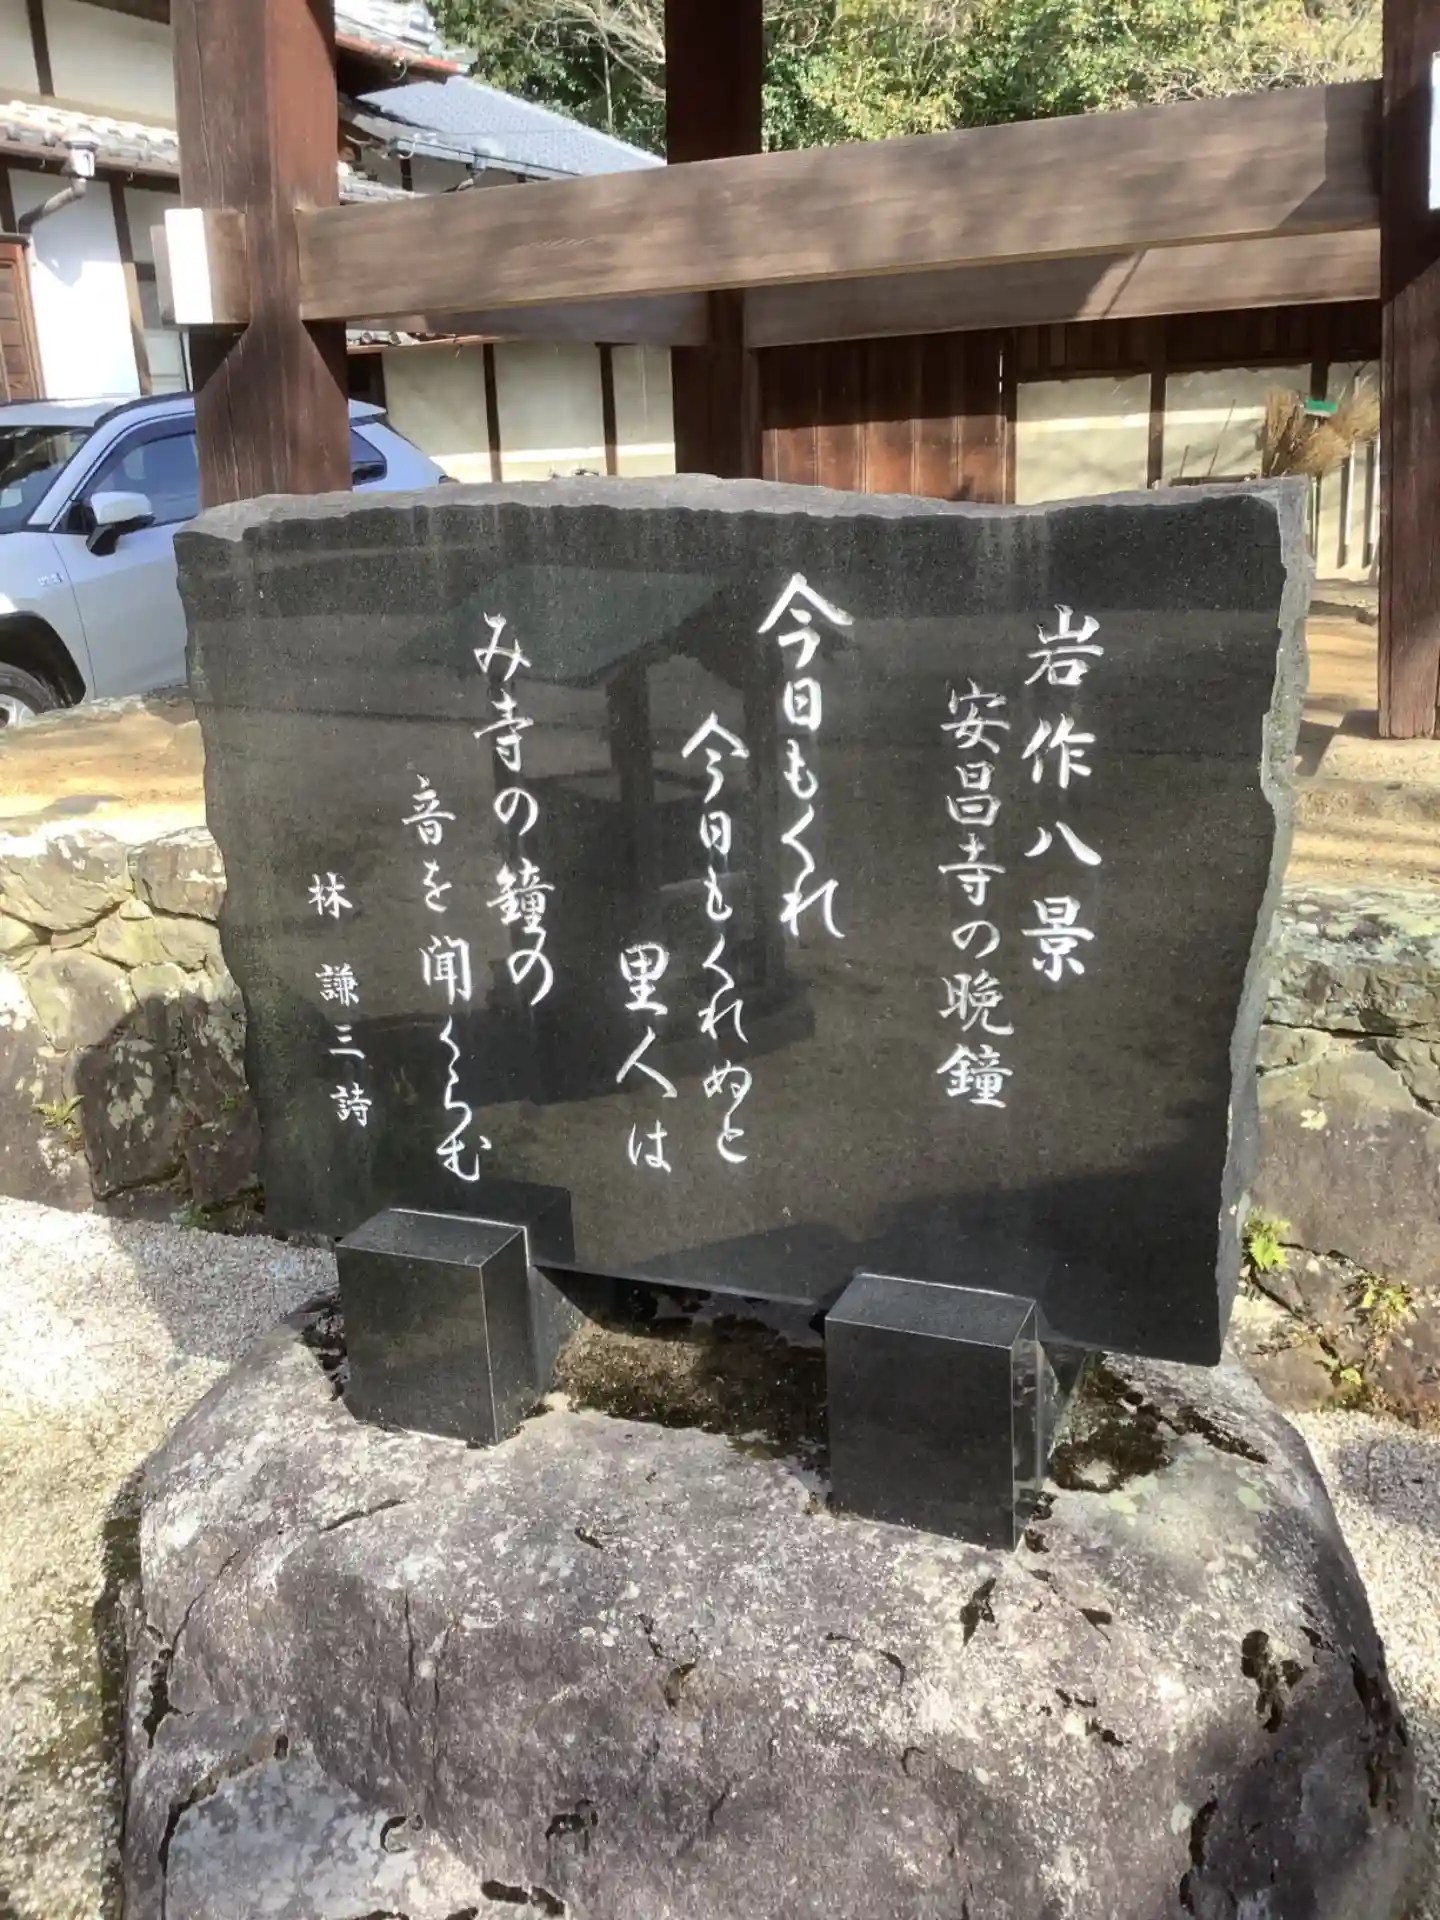 岩作八景
安昌寺の晩鐘
今日もくれ
今日もくれぬと
里人は
み寺の鐘の
音を聞くらむ
林 謙三 詩